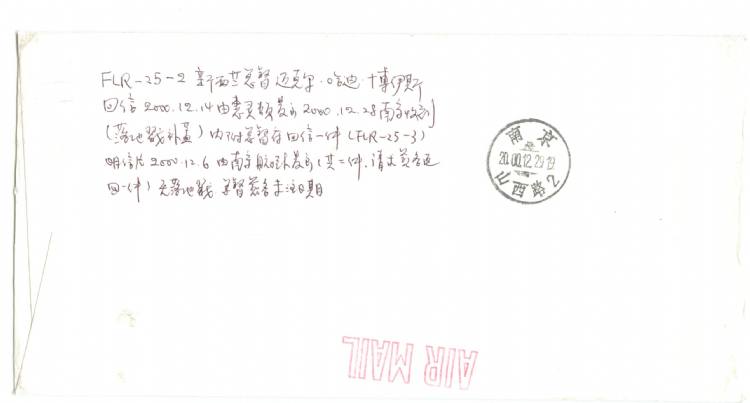 FLR-25-2 新西兰总督 迈克尔·哈迪·博伊斯
回信 2000.12.14 由惠灵顿发出 2000.12.28 南京收到
(落地戳补盖) 内附总督府回信一件 (FLR-25-3)
明信片 2000.12.6 由南京航邮发出 (共二件, 请求签名返
回一件) 无落地戳 总督签名未注日期
南京
20.00.12.29.19
山西路2
AIR MAIL